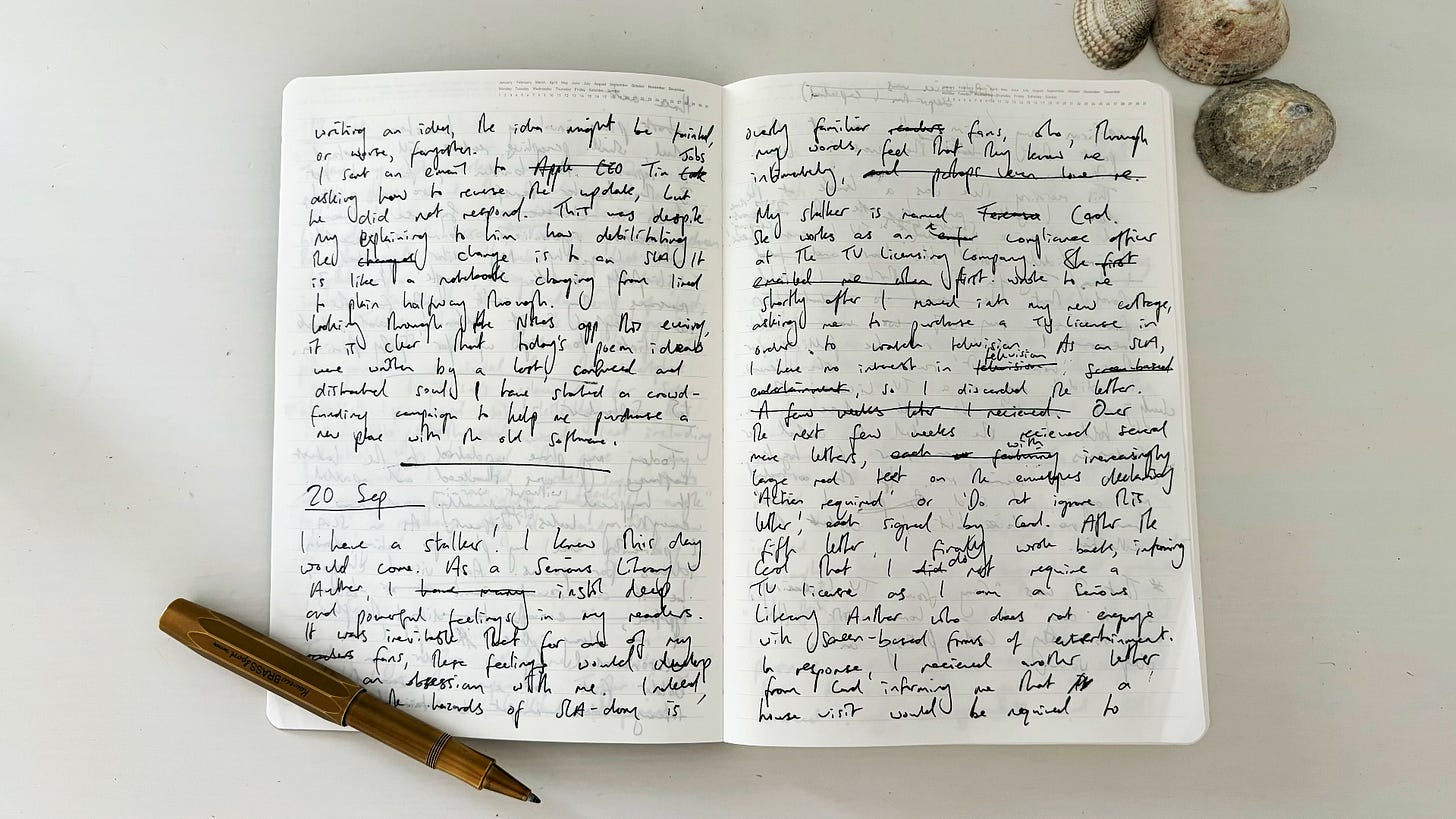 writing an idea, the idea might be tainted,
or worse, forgotten.
Jobs
I sent an email to Apple CEO Tim Cook
asking how to reverse the update, but
he did not respond. This was despite
my explaining to him how debilitating
the changes change is to an SLA. It
is like a notebook changing from lined
to plain halfway through.
Looking through the Notes app this evening,
it is clear that today's poem ideas
were written by a lost, confused and
distracted soul. I have started a crowd-
funding campaign to help me purchase a
new phone with the old software.
20 Sep
I have a stalker! I knew this day
would come. As a Serious Literary
Author, I have many instil deep
and powerful feelings in my readers.
It was inevitable that for one of my
readers fans, these feelings would develop
an obsession with me. Indeed,
the hazards of SLA-dom is
overly familiar readers fans, who, through
my words, feel that they know me
intimately, and perhaps even love me.
My stalker is named Carol.
She works as an compliance officer
at The TV Licensing Company. She first
emailed me when first wrote to me
shortly after I moved into my new cottage,
asking me to purchase a TV license in
order to watch television. As an SLA,
television
I have no interest in television, screen-based
entertainment, so I discarded the letter.
A few weeks later I recieved. Over
the next few weeks I recieved several
with
more letters, each featuring increasingly
large red text on the envelopes declaring
'Action required' or 'Do not ignore this
letter', each signed by Carol. After the
fifth letter, I finally wrote back, informing
do
Carol that I did not require a
TV license as I am a Serious
Literary Author who does not engage
with screen-based forms of entertainment.
In response, I recieved another letter
from Carol informing me that a
house visit would be required to
KawecoBRASS Sport